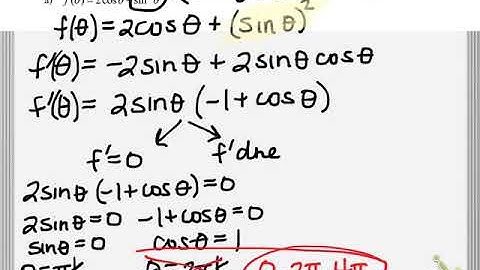 a) f(θ) = 2cosθ + sin²θ
f(θ) = 2cosθ + (sinθ)²
f'(θ) = -2sinθ + 2sinθ cosθ
f'(θ) = 2sinθ (-1 + cosθ)
f' = 0 f' dne
2sinθ (-1 + cosθ) = 0
2sinθ = 0 -1 + cosθ = 0
sinθ = 0 cosθ = 1
θ = πk θ = 2πk 0, 2π, 4π